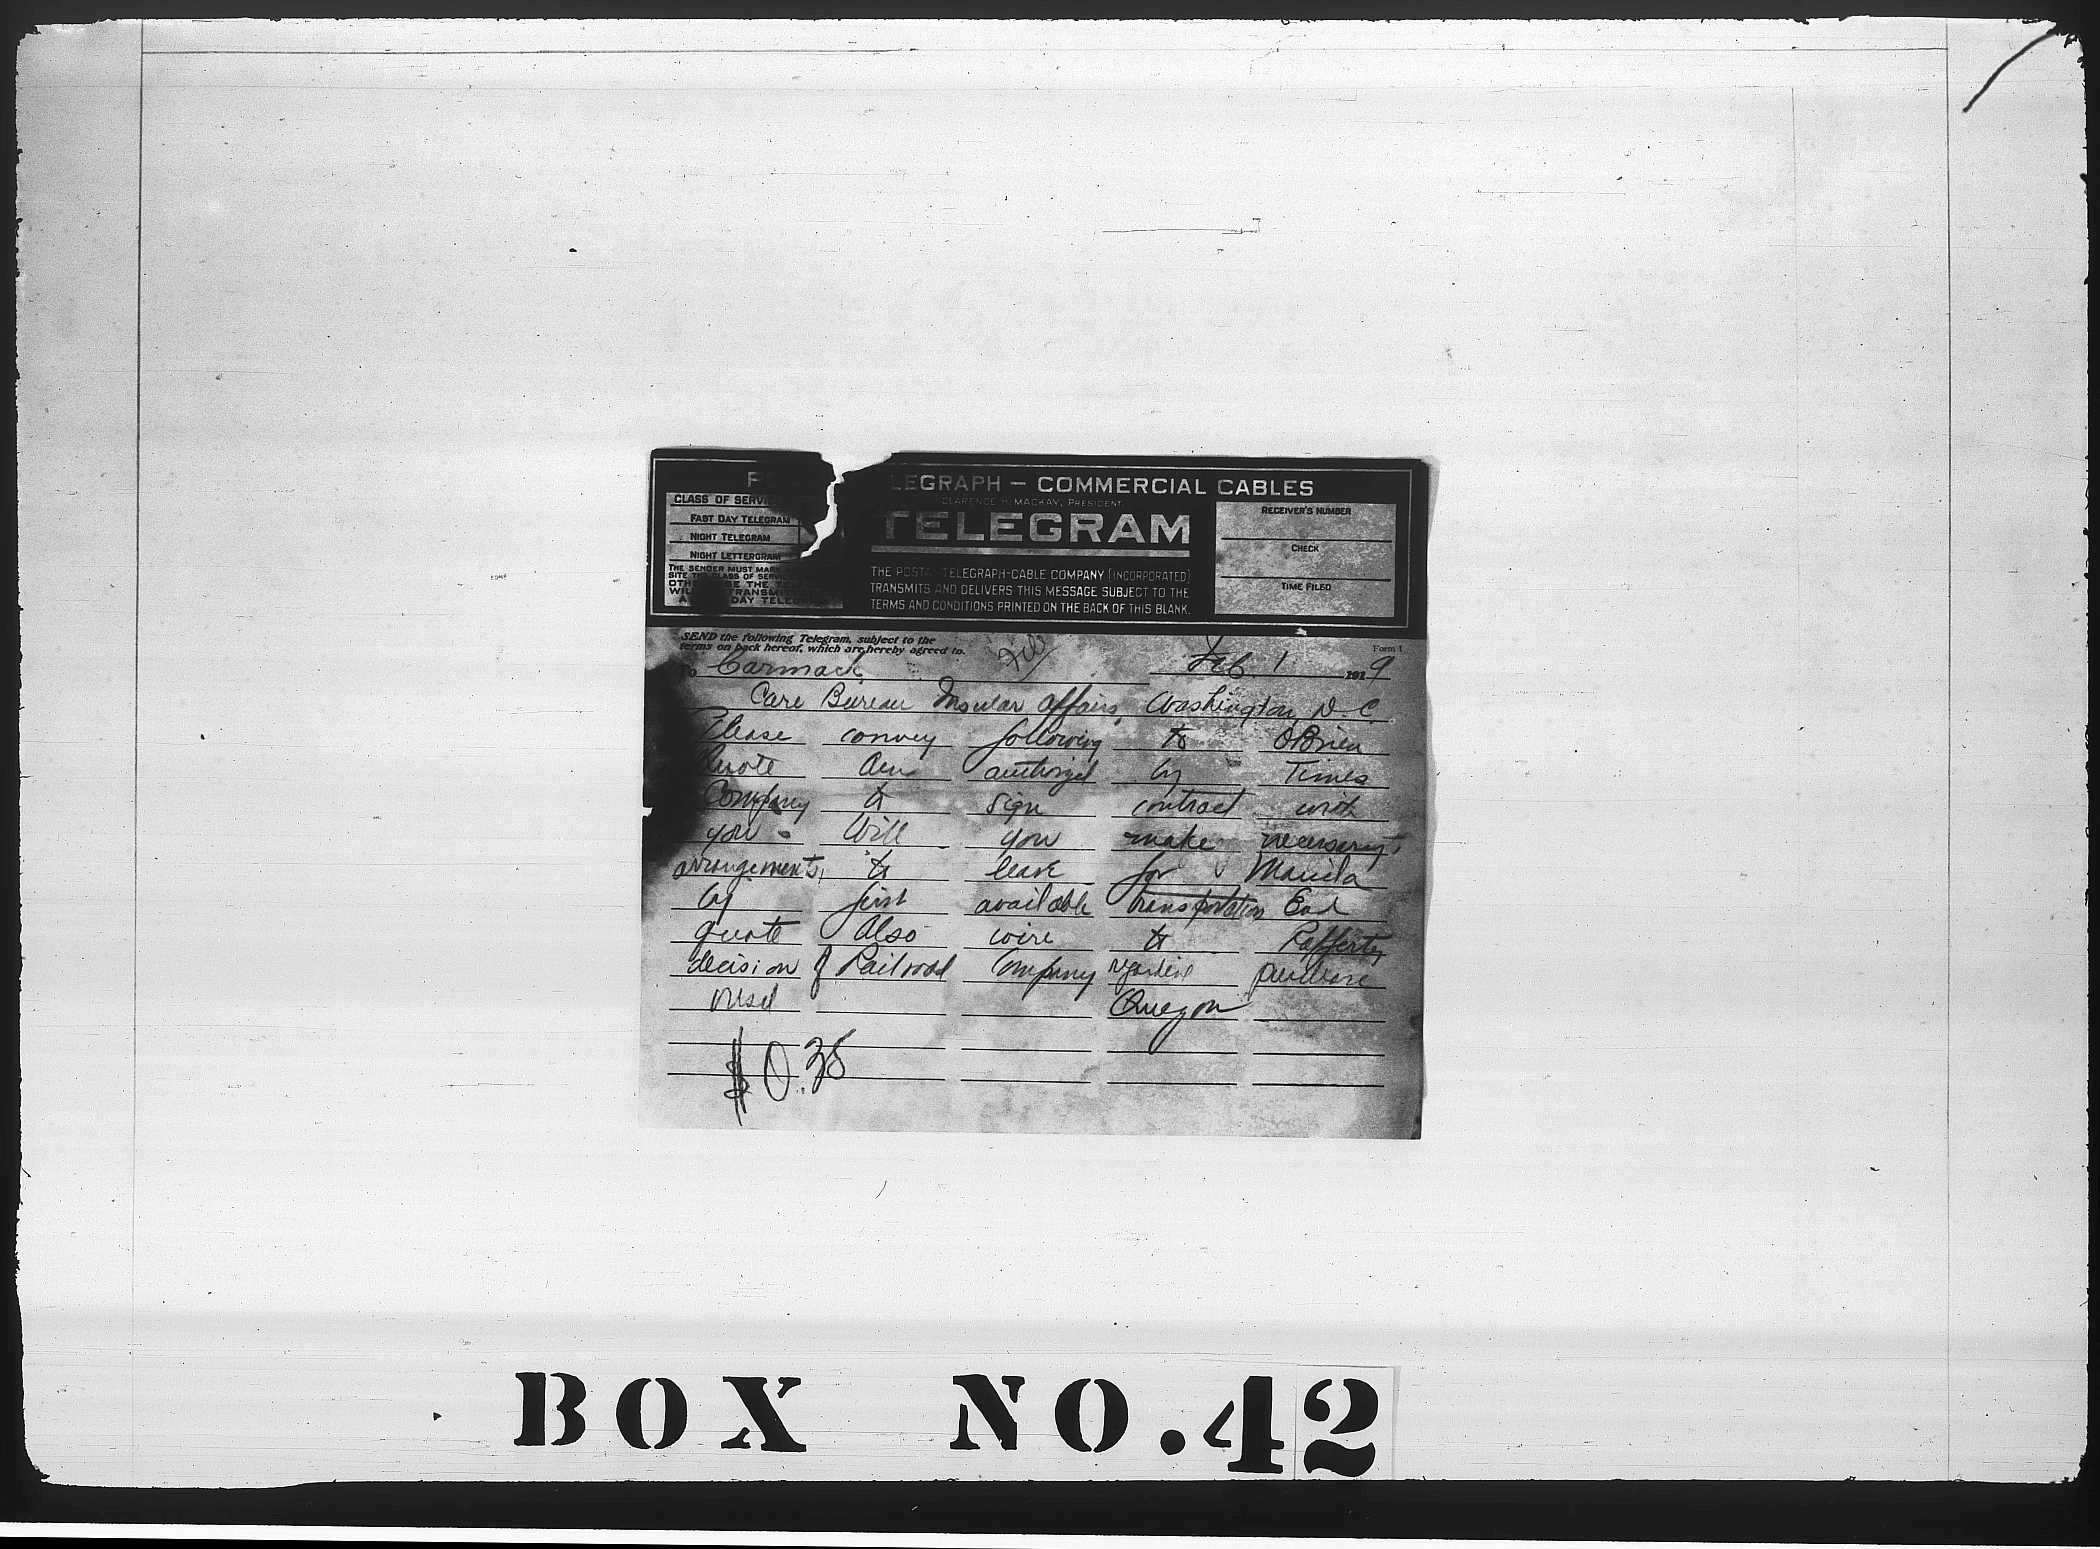 LEGRAPH – COMMERCIAL CABLES
CLARENCE H. MACKAY, PRESIDENT
TELEGRAM
CLASS OF SERVI
FAST DAY TELEGRAM
NIGHT TELEGRAM
NIGHT LETTERGRAM
THE SENDER MUST MAR
SITE THE CLASS OF SERVI
OTH SE THE TE
WIL TRANSMI
A DAY TELE
THE POSTAL TELEGRAPH-CABLE COMPANY (INCORPORATED)
TRANSMITS AND DELIVERS THIS MESSAGE SUBJECT TO THE
TERMS AND CONDITIONS PRINTED ON THE BACK OF THIS BLANK.
RECEIVER'S NUMBER
CHECK
TIME FILED
SEND the following Telegram, subject to the
terms on back hereof, which are hereby agreed to.
Form 1
Feb. 1 1919
Carmack
Care Bureau Insular Affairs, Washington, D.C.
Please convey following to O'Brien
Quote Am authorized by Times
Company to sign contract with
you. Will you make necessary
arrangements to leave for Manila
by first available transportation End
quote Also wire to Rafferty
decision of Railroad Company regarding purchase
vessel
Quezon
$0.38
BOX NO. 42